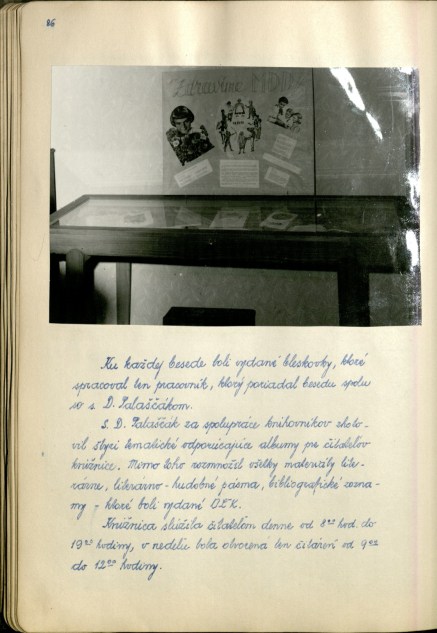 86
Zdravíme MDŽ
Ku každej besede boli vydané bleskovky, ktoré
spracoval ten pracovník, ktorý poriadal besedu spolu
so s. D. Palaščákom.
S. D. Palaščák za spolupráce knihovníkov zhoto-
vil štyri tematické odporúčajúce albumy pre čitateľov
knižnice. Mimo toho rozmnožil všetky materiály lite-
rárne, literárno-hudobné pásma, bibliografické sozna-
my - ktoré boli vydané OĽK.
Knižnica slúžila čitateľom denne od 8⁰⁰ hod. do
19⁰⁰ hodiny, v nedeľu bola otvorená len čitáreň od 9⁰⁰
do 12⁰⁰ hodiny.